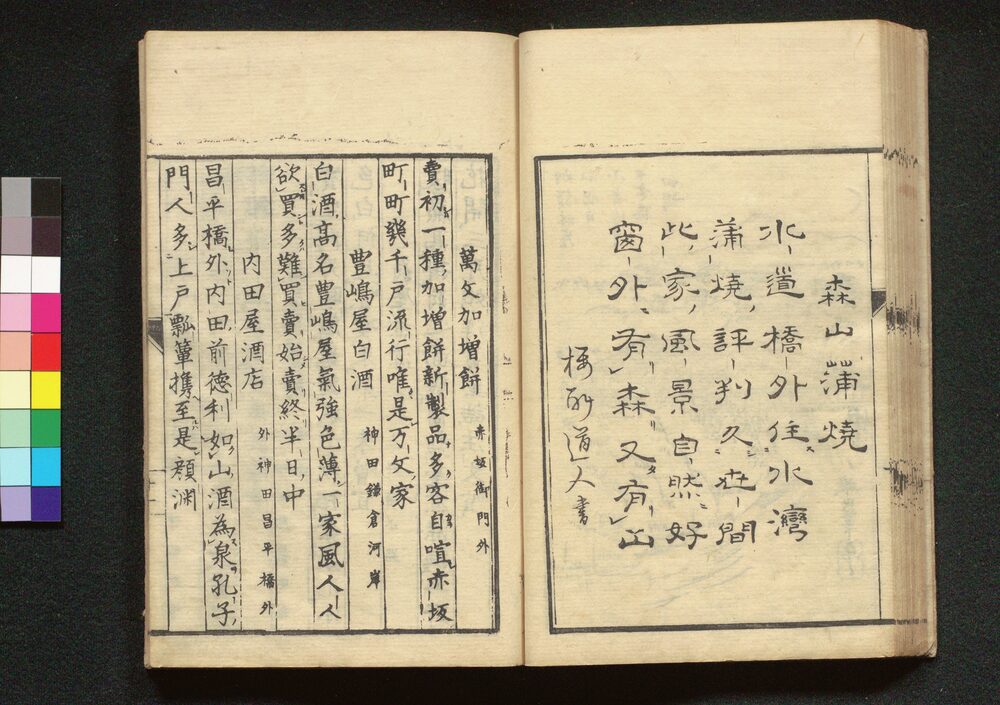 森山蒲焼
水道橋外住水灣
蒲焼評判久世間
此家風景自然好
窗外有森又有山
道人書
萬文加増餅 赤坂御門外
賣初一種加増餅新製品多客自喧赤坂
町町幾千戸流行唯是万文家
豊嶋屋白酒 神田鎌倉河岸
白酒高名豊嶋屋氣強色薄一家風人人
欲買多難買賣始賣終半日中
内田屋酒店 外神田昌平橋外
昌平橋外内田前徳利如山酒為泉孔子
門人多上戸瓢簞携至是顔渕